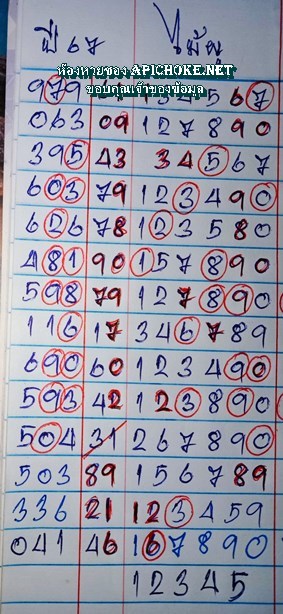 ปี ๖๗ ไม่มู
ห้องหวยซอง APICHOKE.NET
ขอบคุณเจ้าของข้อมูล
979 5 6 7
063 09 127890
395 43 34567
603 79 123490
626 78 123580
481 90 157890
598 79 127890
116 17 346789
690 60 123490
593 42 123890
504 31 267890
503 89 156789
336 21 123459
041 46 167890
12345